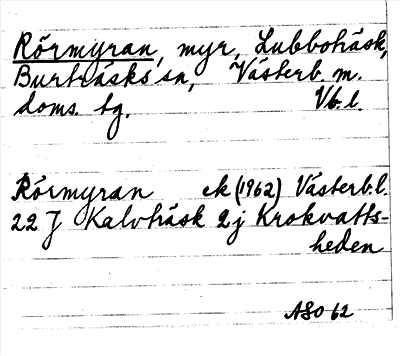 Rörmyran, myr, Lubboträsk,
Burträsks sn, Västerb. m.
doms. tg. Vb. l.
Rörmyran ek (1962) Västerb.l.
22 J Kalvträsk 2j Krokvatts-
heden
ASO 62